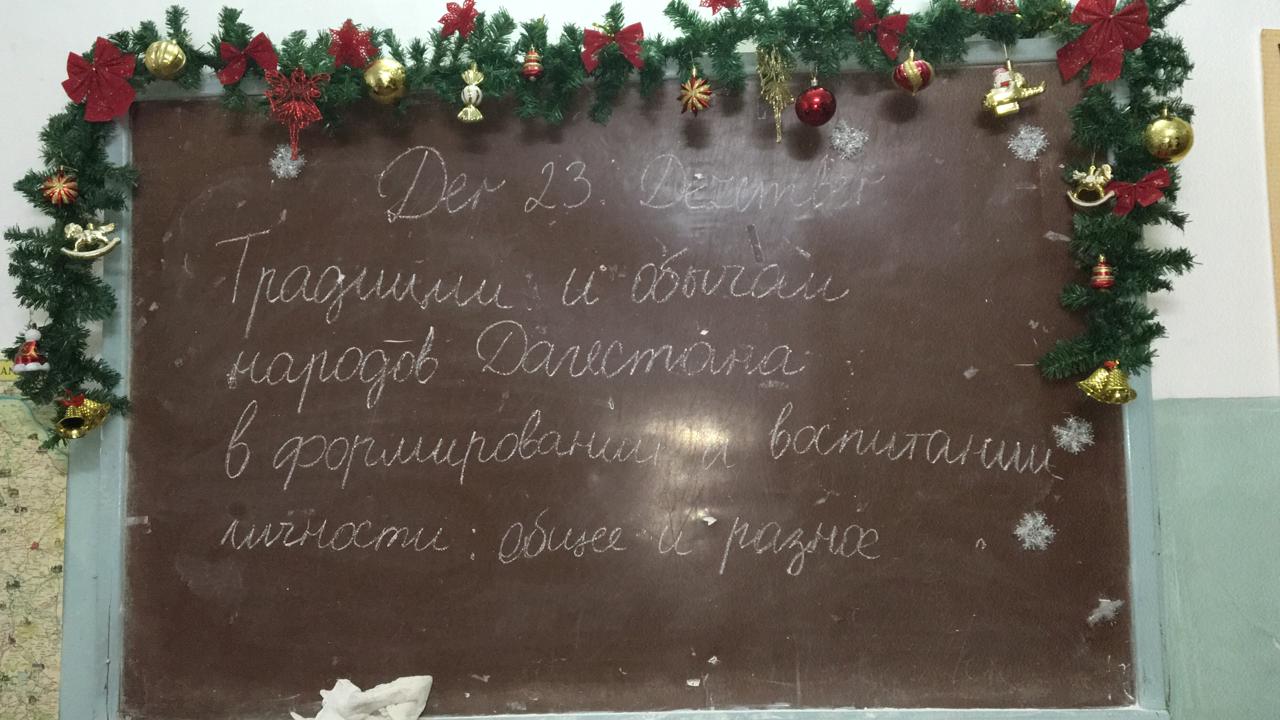 Der 23. Dezember
Традиции и обычаи
народов Дагестана
в формировании и воспитании
личности: общее и разное